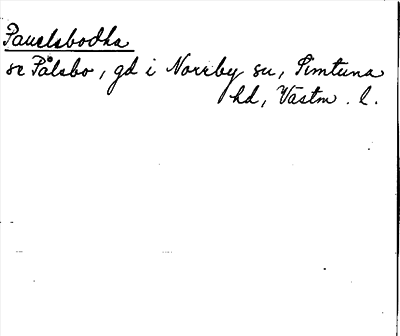 Pauelsbodha
se Pålsbo, gd i Norrby sn, Simtuna
hd, Västm. l.